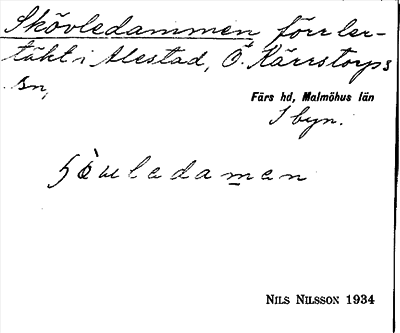 Skövledammen förr ler-
täkt i Alestad, Ö. Kärrstorps
sn,
Färs hd, Malmöhus län
I byn.
Nils Nilsson 1934